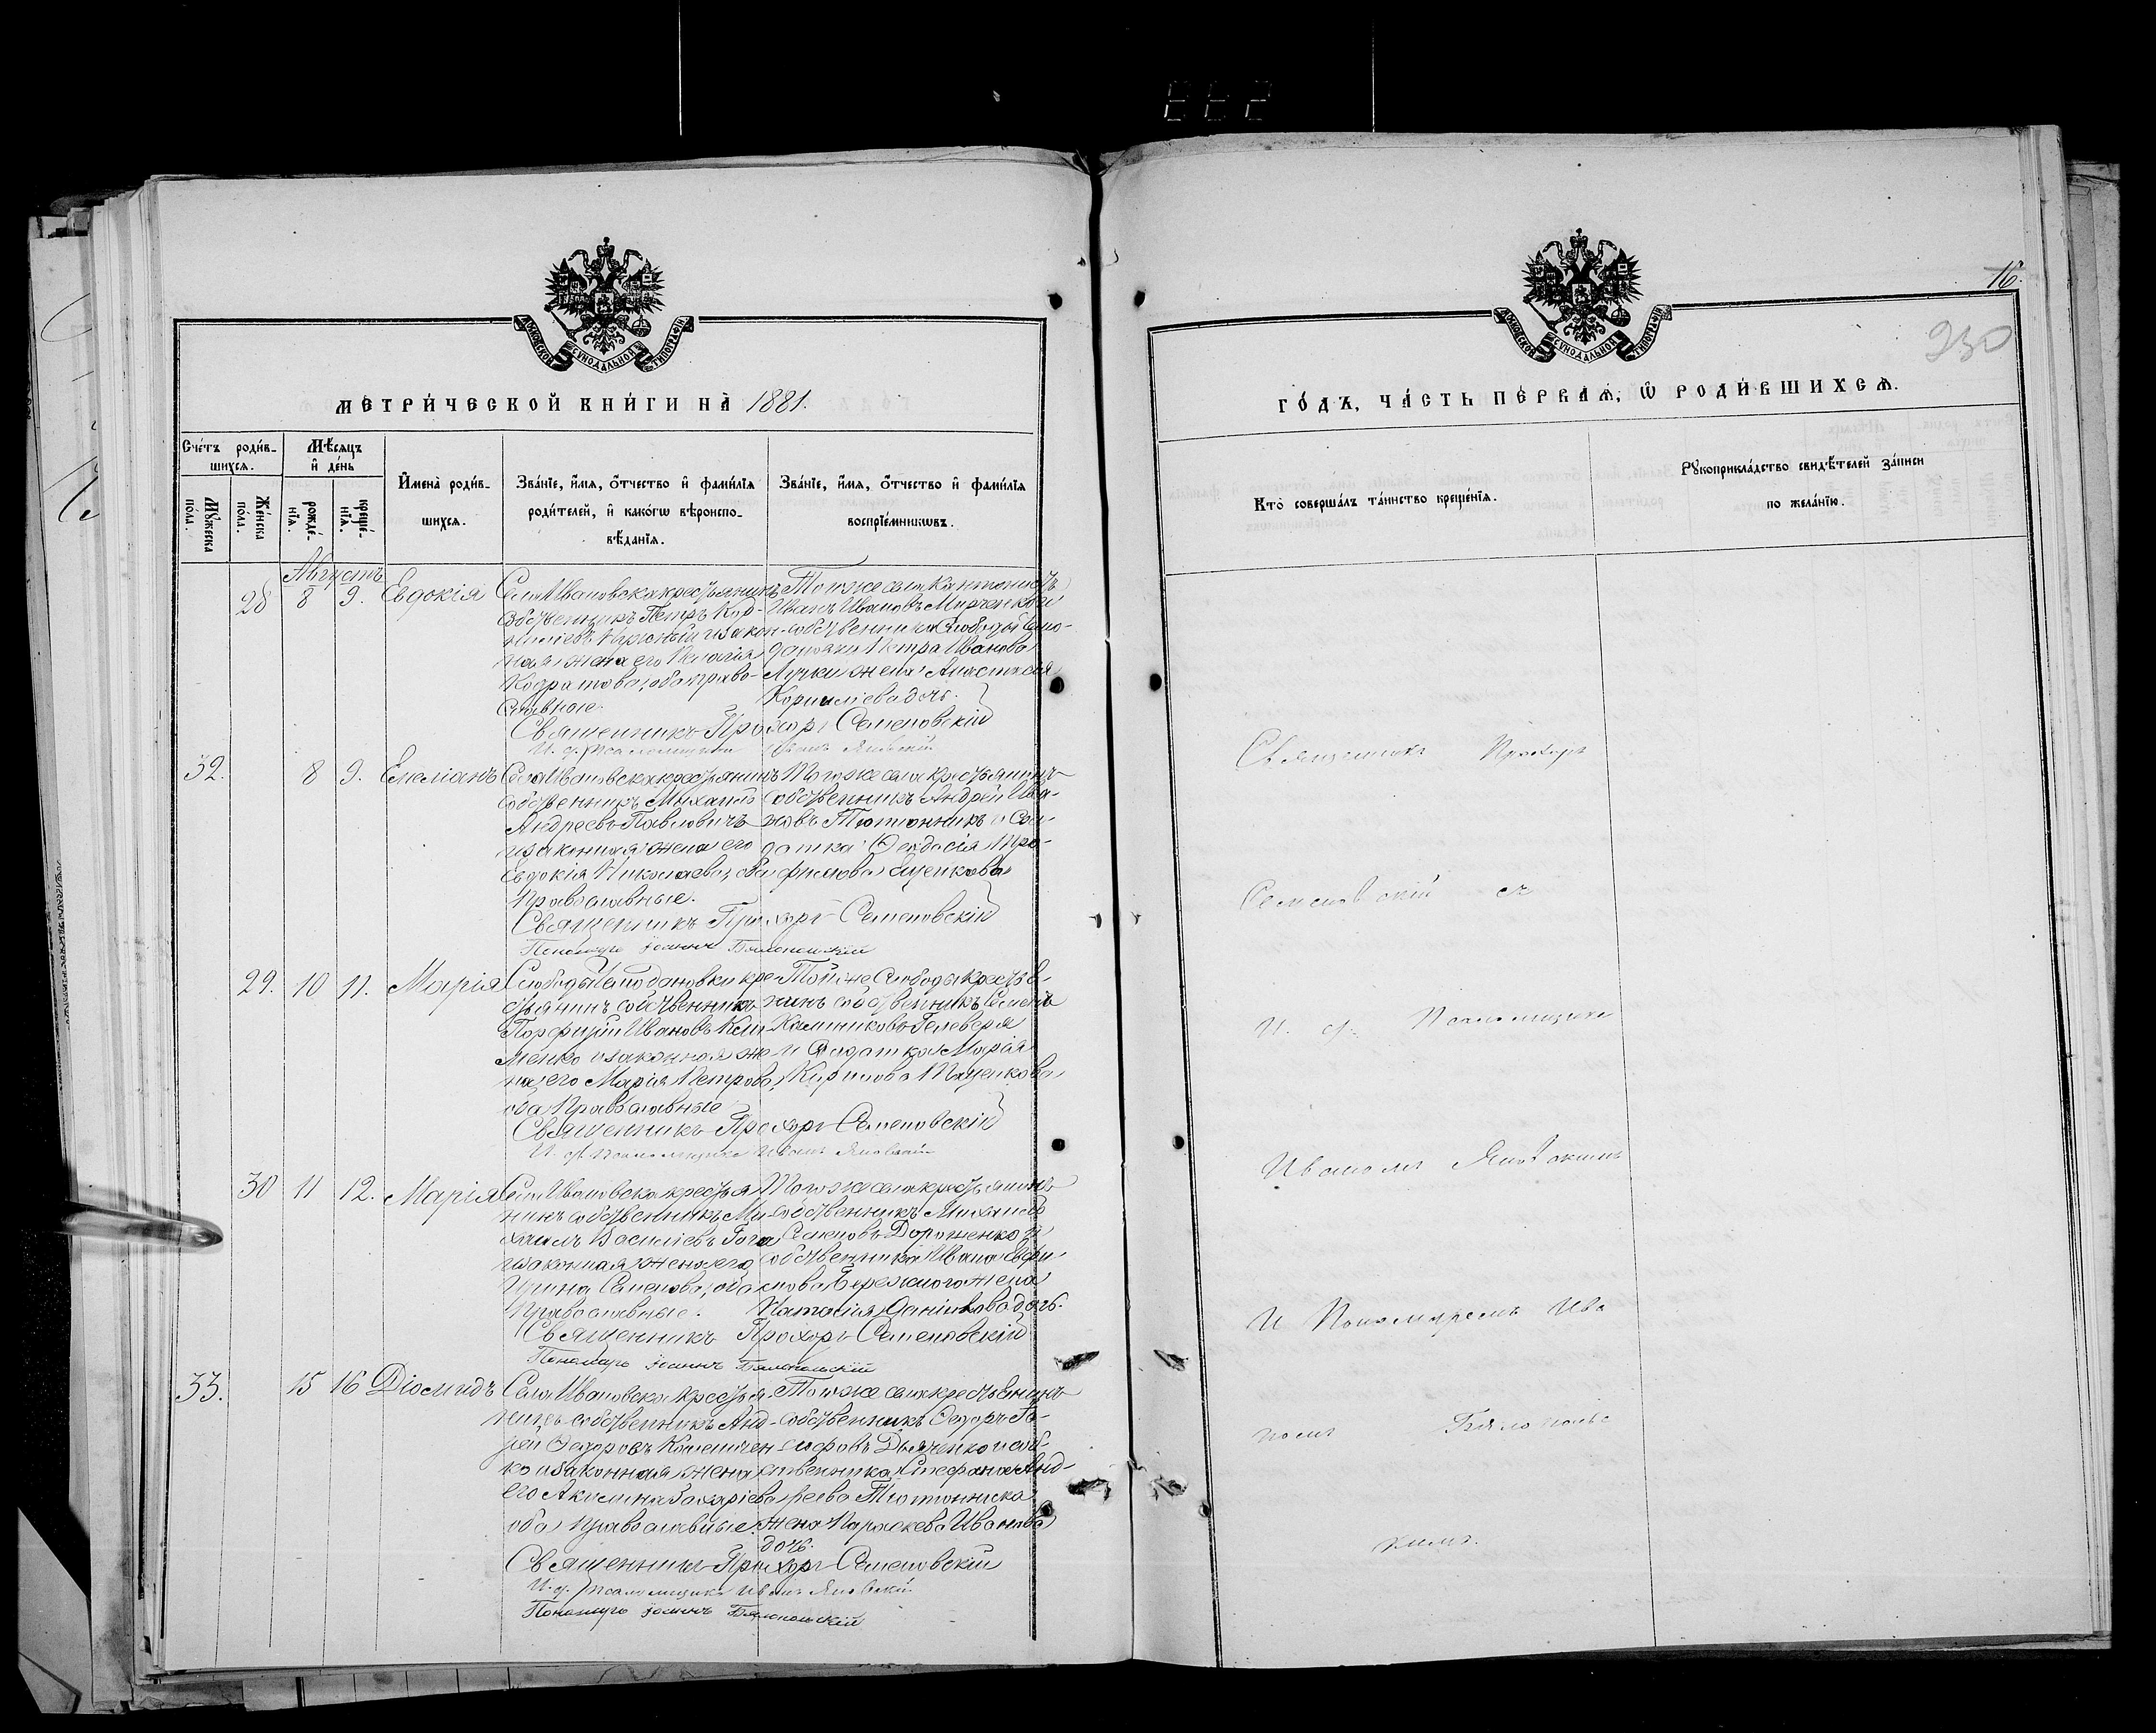 МЕТРИ́ЧЕСКОЙ КНИ́ГИ НА̀ 1881.
Сче́тъ роди́в-
шихся.
Мѣ́сяцъ
и҆ де́нь
Му́жеска
по́ла.
Же́нска
по́ла.
рожде́-
нїя.
креще́-
нїя.
И҆мена̀ роди́в-
шихся.
Зва́нїе, и҆́мя, ѻ҆́тчество и҆ фами́лїя
роди́телей, и҆ како́гѡ вѣроиспо-
вѣ́данїя.
Зва́нїе, и҆́мя, ѻ҆́тчество и҆ фами́лїя
воспрїе́мникѡвъ.
Августъ
28 8 9. Евдокія
Села Ивановска крестьянинъ
собственникъ Петръ Кор-
законная жена его
оба право-
славные.
Тогоже села
Иванъ Ивановъ и
собственника Слободы
Петра Иванова
жена Анастасія
Корниліева дочь.
Священникъ Прохоръ Семеновскій
И. д. Псаломщика Иванъ Яновскій
32. 8 9. Емеліанъ
Села Ивановска крестьянинъ
собственникъ Михаилъ
Андреевъ Павловичъ
и законная жена его
Евдокія Николаева, оба
Православные.
Тогоже села крестьянинъ
собственникъ Андрей Ива-
новъ Тютюнникъ и Сол-
датка Феодосія Тро-
фимова Ященкова
Священникъ Прохоръ Семеновскій
Пономарь Іоаннъ Бялопольскій
29. 10 11. Марія
Слободы Чемодановки кре-
стьянинъ собственникъ
Порфирій Ивановъ Кли-
менко и законная же-
на его Марія Петрова,
оба Православные
Тойже Слободы крестья-
нинъ собственникъ Семенъ
Калиниковъ Гелеверя
и Солдатка Марія
Кирилова Тищенкова
Священникъ Прохоръ Семеновскій
И. д. Псаломщика Иванъ Яновскій
30 11 12. Марія
Села Ивановска крестья-
нинъ собственникъ Ми-
хаилъ Василіевъ Гога
и законная жена его
Ирина Семенова, оба
Православные.
Тогоже села крестьянинъ
собственникъ Михаилъ
Семеновъ Дорошенко и
собственника Ивана Ефи-
мова Бережного жена
Наталія Данилова дочь.
Священникъ Прохоръ Семеновскій
Пономарь Іоаннъ Бялопольскій
33. 15 16 Діомидъ
Села Ивановска крестья-
нинъ собственникъ Анд-
рей Федоровъ
и законная жена
его Акилина Захаріева
оба Православные.
Тогоже села крестьянинъ
собственникъ Федоръ
Дьяченко и соб-
ственника Стефана Анд-
реева Тютюнника
жена Параскева Иванова
дочь.
Священникъ Прохоръ Семеновскій
И. д. Псаломщика Иванъ Яновскій
Пономарь Іоаннъ Бялопольскій
МОСКОВСКОЙ СѴНОДАЛЬНОЙ ТИПОГРАФІИ
16.
230
ГО́ДЪ, ЧА́СТЬ ПЕ́РВАЯ, Ѡ҆ РОДИ́ВШИХСЯ.
Кто̀ соверша́лъ та́инство креще́нїя.
Рꙋкоприкла́дство свидѣ́телей за́писи
по жела́нїю.
Священникъ Прохоръ
Семеновскій съ
И. д. Псаломщика
Иваномъ Яновскимъ
и Пономаремъ Ива
номъ Бялополь
скимъ.